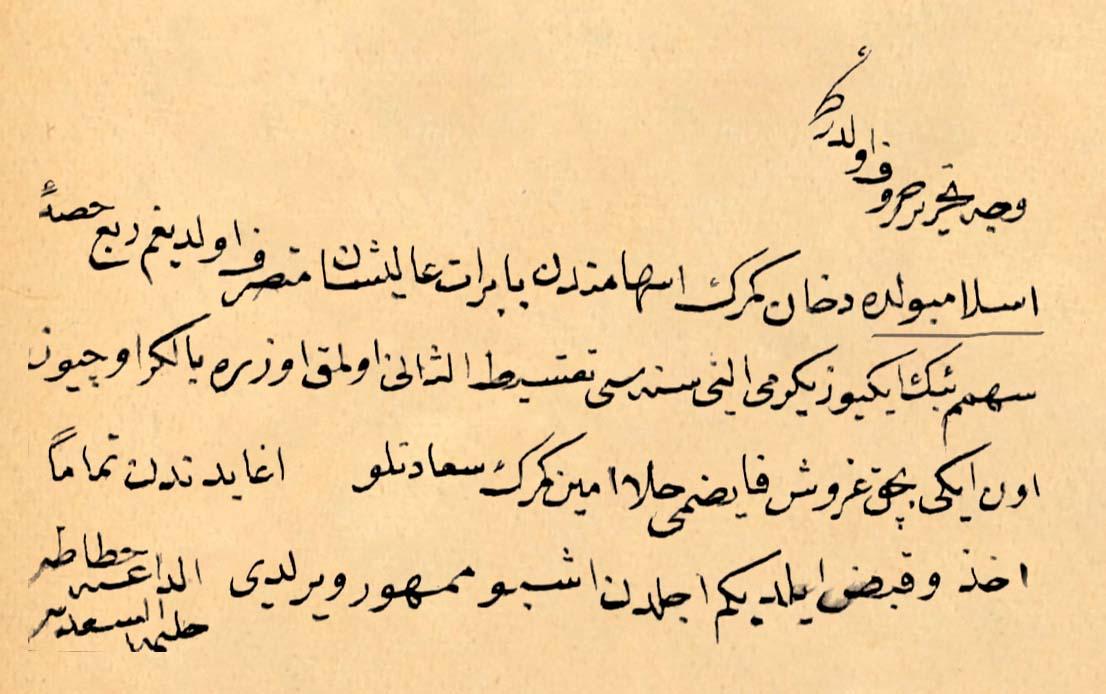 وجه تحریر حروف اولدر که
اسلامبولده دخان كمرك اسهامندن بابرات عالیشان متصرف اولدیغم ربع حصهٔ
سهمم بیك ایكیوز یكرمی التی سنه سی تقسیط الثانی اولمق اوزره یالكز اوچیوز
اون ایكی بچق غروش فایضمی حالا امین كمرك سعادتلو اغا یدندن تماماً
اخذ و قبض ایلدیكم اجلدن اشبو ممهور ویرلدی الداعیه